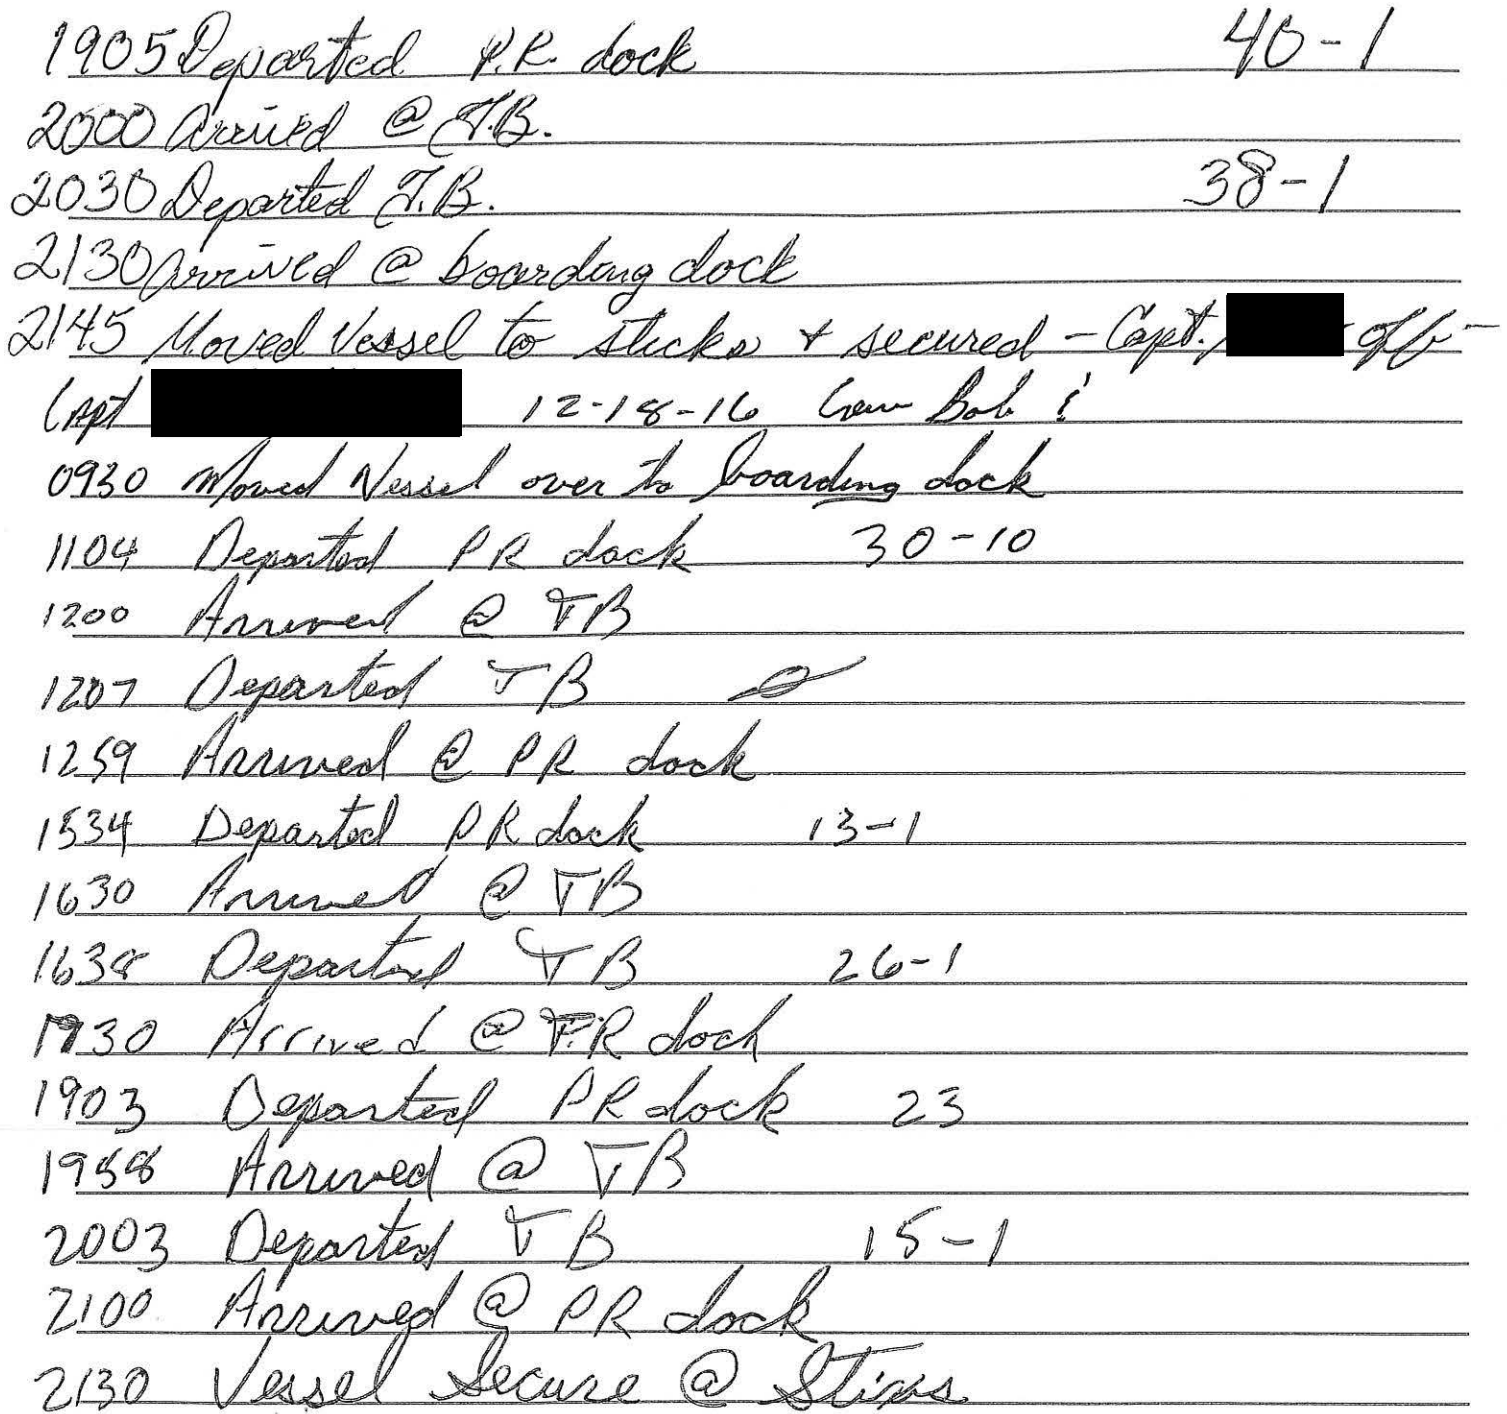 1905 Departed P.R. dock 40-1
2000 Arrived @ T.B.
2030 Departed T.B. 38-1
2130 Arrived @ boarding dock
2145 Moved Vessel to sticks + secured - Capt. off -
Capt 12-18-16 Crew Bob &
0930 Moved Vessel over to boarding dock
1104 Departed PR dock 30-10
1200 Arrived @ TB
1207 Departed TB
1259 Arrived @ PR dock
1534 Departed PR dock 13-1
1630 Arrived @ TB
1638 Departed TB 26-1
1730 Arrived @ P.R dock
1903 Departed PR dock 23
1958 Arrived @ TB
2003 Departed TB 15-1
2100 Arrived @ PR dock
2130 Vessel Secure @ Stixs